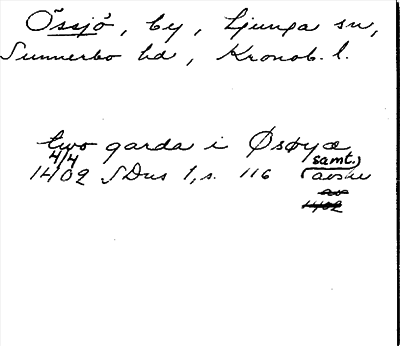 Össjö, by, Ljunga sn,
Sunnerbo hd, Kronob. l.
two garda i Øsøyæ
4/4
1402 SDns 1, s. 116 (samt.)
avskr
av
1402